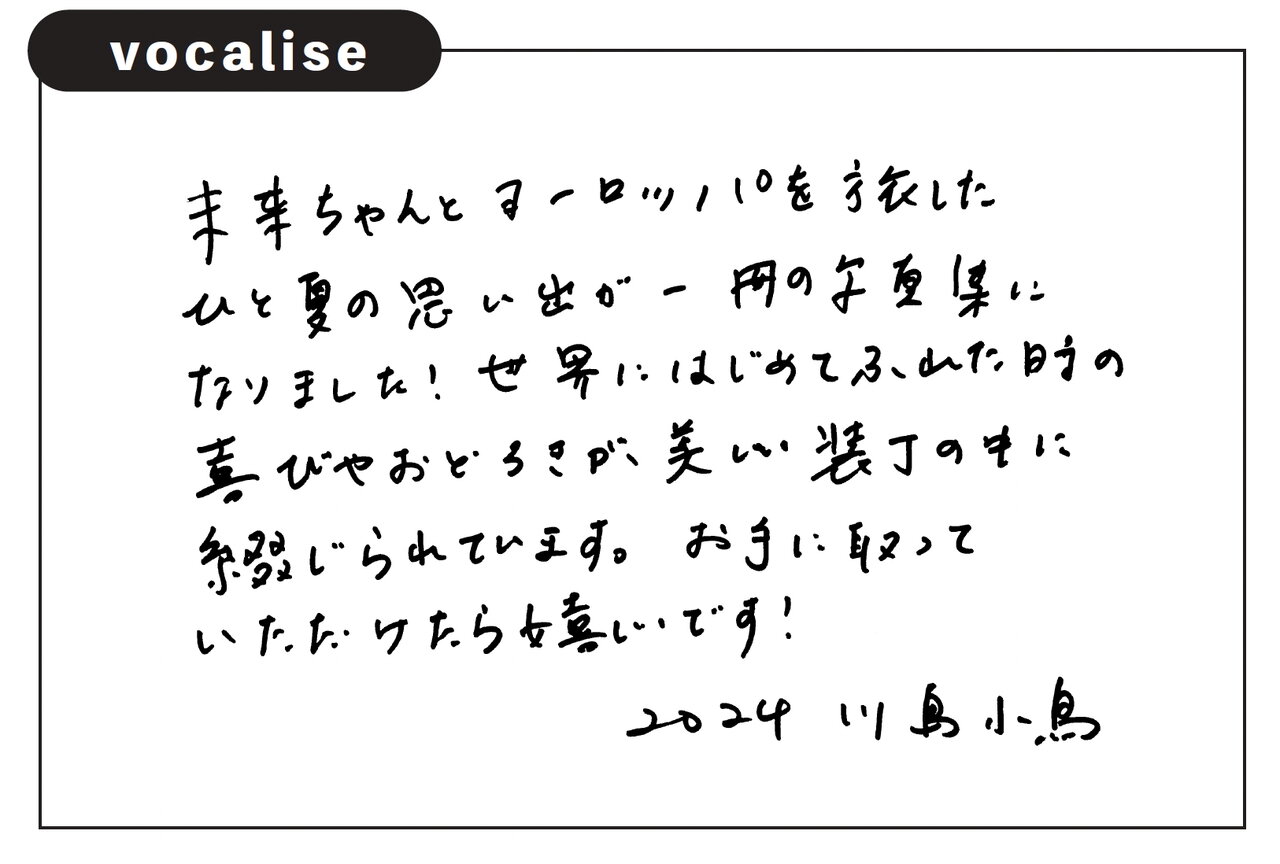 vocalise
未来ちゃんとヨーロッパを旅した
ひと夏の思い出が一冊の写真集に
なりました！世界にはじめてふれた時の
喜びやおどろきが、美しい装丁の中に
綴じられています。お手に取って
いただけたら嬉しいです！
2024 川島小鳥